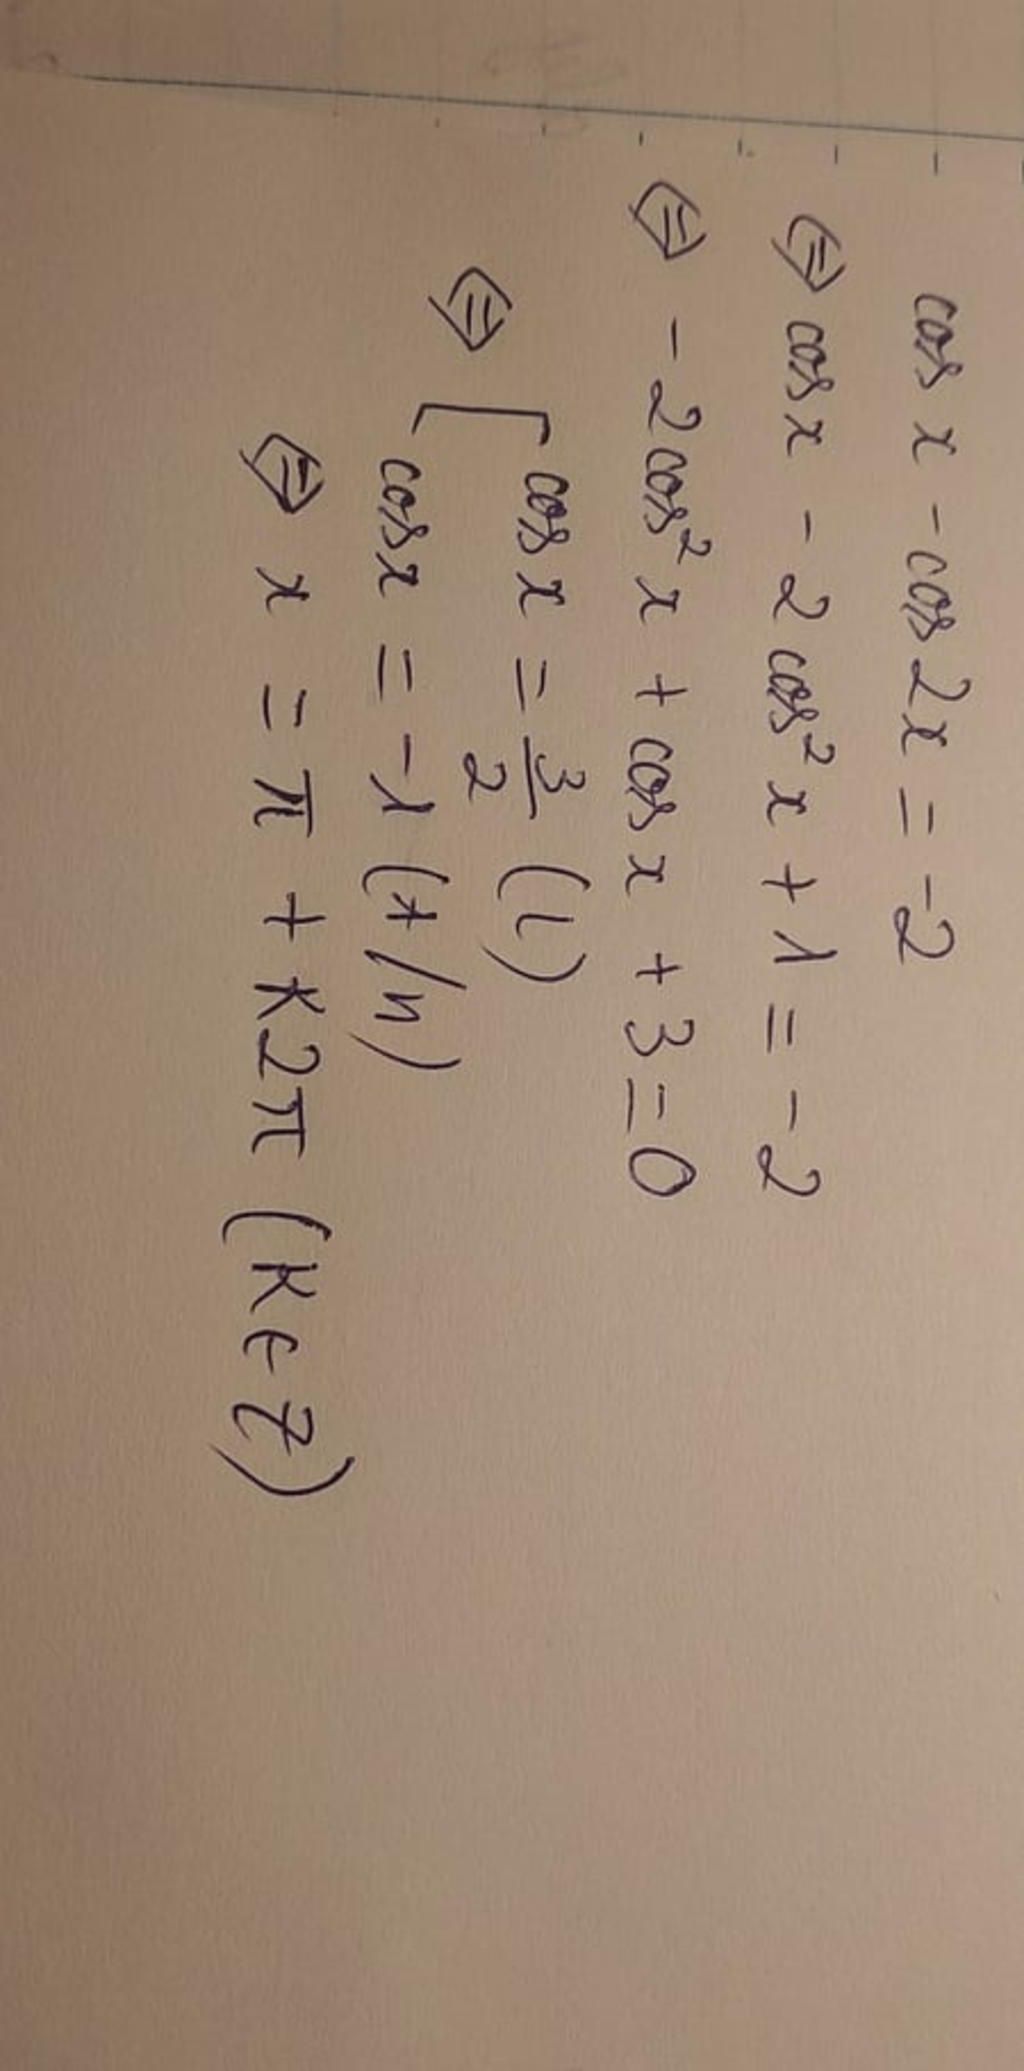 cos x - cos 2x = -2
⇔ cos x - 2 cos² x + 1 = -2
⇔ - 2cos² x + cos x + 3 = 0
⇔ [ cos x = 3/2 (l)
cos x = -1 (t/n)
⇔ x = π + k2π (k ∈ Z)